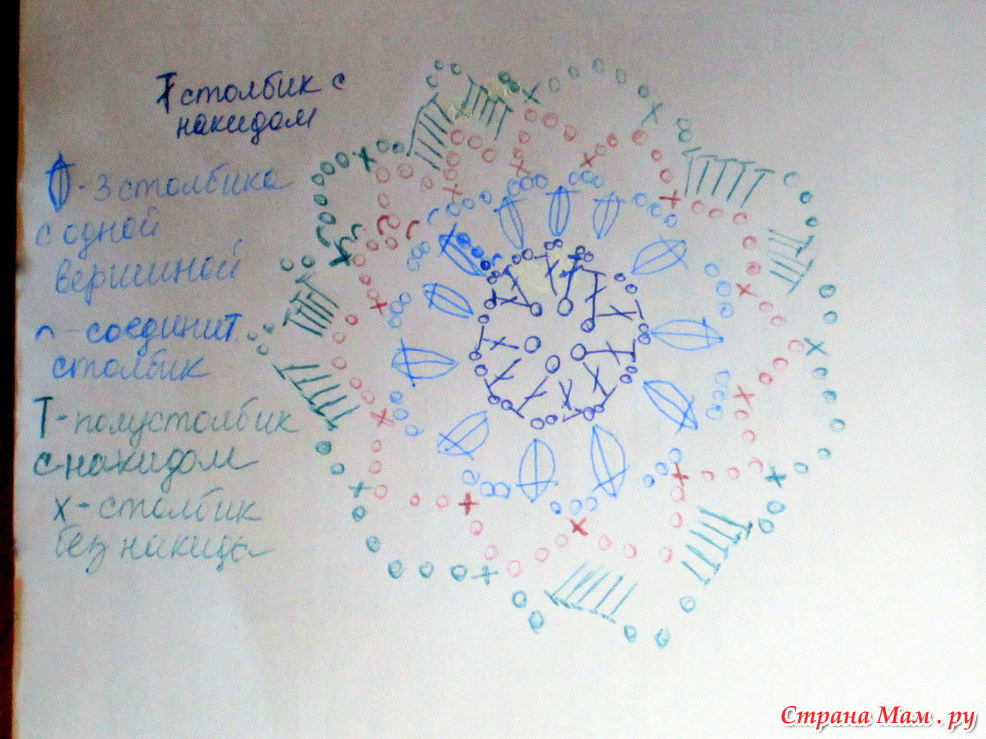 Ŧ столбик с
накидом
- 3 столбика
с одной
вершиной
⌒ - соединит.
столбик
T - полустолбик
с накидом
x - столбик
без накида
Страна Мам . ру